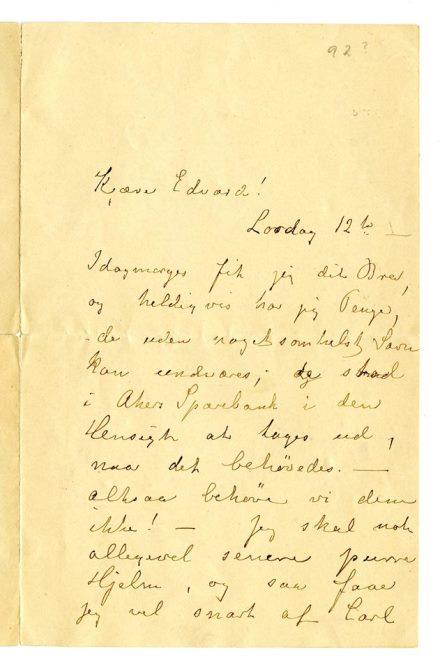 92?
Kjære Edvard!
Lørdag 12te
Idagmorges fik jeg dit Brev,
og heldigvis har jeg Penge,
de uden noget somhelst Savn
kan undværes; de stod
i Akers Sparebank i den
Hensigt at tages ud,
naar det behövedes. —
altsaa behöve vi dem
ikke! — Jeg skal nok
allegevel senere purre
Hjelm, og saa faae
jeg vel snart af Carl